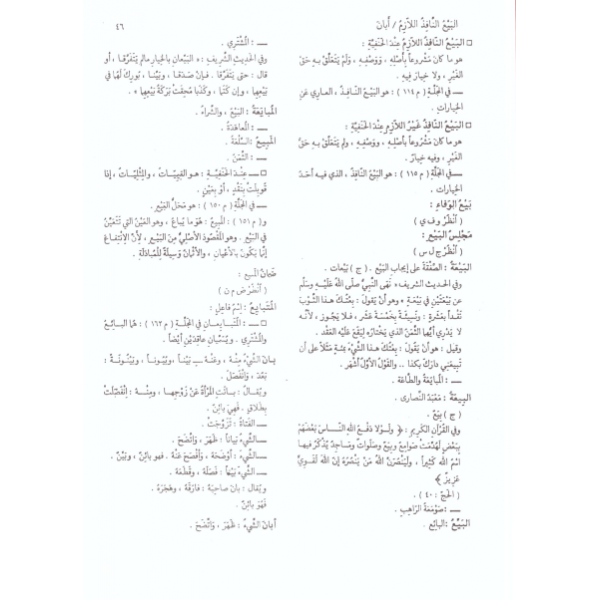 البَيْعُ النَّافِذُ اللاَّزِمُ / أَبانَ
٤٦
□ البَيْعُ النَّافِذُ اللاَّزِمُ عِنْدَ الحَنَفِيَّةِ :
هو ما كان مَشْروعاً بأَصْلِهِ ، وَوَصْفِهِ ، وَلَمْ يَتَعَلَّقْ بِهِ حَقُّ
الغَيْرِ ، ولا خِيارَ فيهِ .
ــ في المَجَلَّةِ ( م ١١٤ ) : هو البَيْعُ النَّافِذُ ، العاري عَنِ
الخِيارات .
□ البَيْعُ النَّافِذُ غَيْرُ اللاَّزِمِ عِنْدَ الحَنَفِيَّةِ :
هو ما كان مَشْروعاً بأَصْلِهِ ، ووَصْفِهِ ، ولم يَتَعَلَّقْ بِهِ حَقُّ
الغَيْرِ ، وفيه خِيارٌ .
ــ في المَجَلَّةِ ( م ١١٥ ) : هو البَيْعُ النَّافِذُ ، الذي فيه أَحَدُ
الخِيارات .
بَيْعُ الوَفاءِ :
( أُنْظُرْ و ف ي )
مَجْلِسُ البَيْعِ :
( أُنْظُرْ ج ل س )
البَيْعَةُ : الصَّفْقَةُ على إيجابِ البَيْعِ . ( ج ) بَيْعات .
وفي الحديث الشريف « نَهَى النَّبيُّ صلَّى اللهُ عَلَيْهِ وسَلَّم
عن بَيْعَتَيْنِ في بَيْعَةٍ » وهو أَنْ يَقولَ : بِعْتُكَ هذا الثَّوْبَ
نَقْداً بعَشَرةٍ : ونَسِيئةً بِخَمْسَةَ عَشَر ، فلا يَجوز ، لأَنَّه
لا يَدْري أَيُّهما الثَّمَنُ الذي يَخْتارُه لِيَقَعَ عَلَيْهِ العَقْد .
وقيل : هو أَنْ يَقولَ : بِعْتُكَ هذا الشَّيءَ بمِئةٍ مَثَلاً على أَن
تَبيعَني دارَكَ بكذا .. والقَوْلُ الأَوَّلُ أَشْهر .
ــ : المُبايَعَةُ والطَّاعَة .
البِيعَةُ : مَعْبَدُ النَّصارى .
( ج ) بِيَع .
وفي القرآن الكريم : ﴿ وَلَوْلا دَفْعُ اللهِ النَّاسَ بَعْضَهُمْ
بِبَعْضٍ لَهُدِّمَتْ صَوامِعُ وبِيَعٌ وصَلَواتٌ ومَساجِدُ يُذْكَرُ فيها
اسْمُ اللهِ كَثيراً ، ولَيَنْصُرَنَّ اللهُ مَنْ يَنْصُرُهُ إِنَّ اللهَ لَقَوِيٌّ
عَزِيزٌ ﴾
( الحَجّ : ٤٠ ) .
ــ : صَوْمَعَةُ الرَّاهِبِ .
البَيِّعُ : البائِع .
ــ : المُشْتَري .
وفي الحديثِ الشَّريفِ : « البَيِّعانِ بالخِيارِ ما لم يَتَفَرَّقا ، أو
قال : حتى يَتَفَرَّقا . فإنْ صَدَقا ، وبَيَّنا ، بُورِكَ لَهُما في
بَيْعِهِما ، وإن كَتَما ، وكَذَبا مُحِقَتْ بَرَكَةُ بَيْعِهِما » .
المُبايَعَةُ : البَيْعُ ، والشِّراءُ .
ــ : المُعاهَدَةُ .
المَبيعُ : السِّلْعَةُ .
ــ : الثَّمَنُ .
□ ــ عِنْدَ الحَنَفِيَّةِ : هو القِيمِيَّاتُ ، والمِثْلِيَّاتُ ، إذا
قُوبِلَتْ بِنَقْدٍ ، أَوْ بعَيْنٍ .
ــ في المَجَلَّةِ ( م ١٥٠ ) : هو مَحَلُّ البَيْعِ .
و ( م ١٥١ ) : المَبيعُ : هُوَ ما يُباعُ ، وهُوَ العَيْنُ التي تَتَعَيَّنُ
في البَيْعِ . وهو المَقْصُودُ الأَصْلِيُّ مِنَ البَيْعِ ، لأَنَّ الاِنْتِفاعَ
إنَّما يَكُونُ بالأَعْيانِ ، والأَثْمانُ وَسيلَةٌ لِلْمُبادَلَةِ .
ضَمانُ المَبيعِ :
( أُنْظُرْ ض م ن )
المُتبايِعُ : اِسْمُ فاعِلٍ :
□ ــ : المُتَبايِعانِ في المَجَلَّةِ ( م ١٦٢ ) : هُما البائِعُ
والمُشْتَري . ويُسَمَّيانِ عاقِدَيْنِ أيضاً .
بـانَ الشَّيْءُ مِنْهُ ، وعَنْهُ ــ بَيْناً ، وبُيُوناً ، وبَيْنُونَةً :
بَعُدَ ، وانْفَصَلَ .
ويُقالُ : بانَتِ المَرْأَةُ عَنْ زَوْجِها ، ومِنْهُ : اِنْفَصَلَتْ
بِطَلاقٍ . فَهِيَ بائِنٌ .
ــ الفَتاةُ : تَزَوَّجَتْ .
ــ الشَّيْءُ بَياناً : ظَهَرَ ، واتَّضَحَ .
ــ الشَّيْءَ : أَوْضَحَهُ ، وأَفْصَحَ عَنْهُ . فهو بائِنٌ ، وبَيِّنٌ .
ــ الشَّيْءَ بَيْناً : فَصَلَهُ ، وقَطَعَهُ .
ويُقالُ : بانَ صاحِبَهُ : فارَقَهُ ، وهَجَرَهُ .
فَهوَ بائِنٌ .
أَبانَ الشَّيْءُ : ظَهَرَ ، وَاتَّضَحَ .